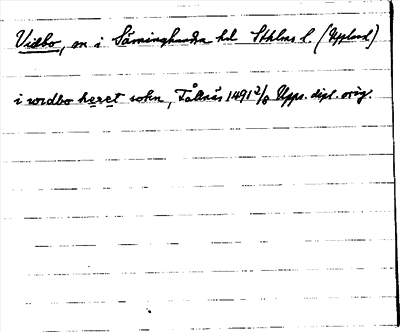 Vidbo, sn i Seminghundra hd Sthlms l. (Uppland)
i widbo heret sokn, Fållnäs 1491 2/8 Upps. dipl. orig.